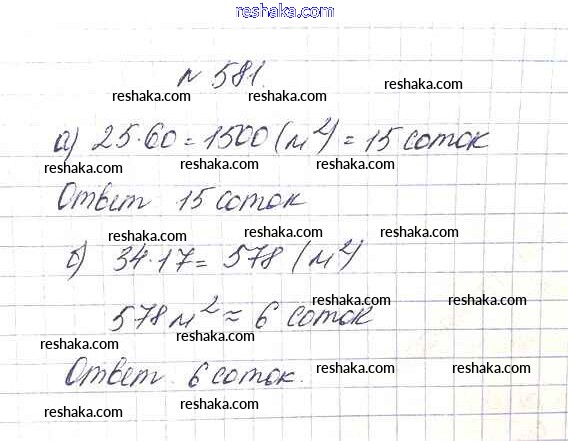 reshaka.com
№ 581.
reshaka.com reshaka.com
а) 25·60 = 1500 (м²) = 15 соток
reshaka.com reshaka.com reshaka.com
Ответ 15 соток
reshaka.com reshaka.com
б) 34·17 = 578 (м²)
reshaka.com reshaka.com
578 м² ≈ 6 соток
reshaka.com
reshaka.com reshaka.com
Ответ 6 соток.
reshaka.com reshaka.com reshaka.com